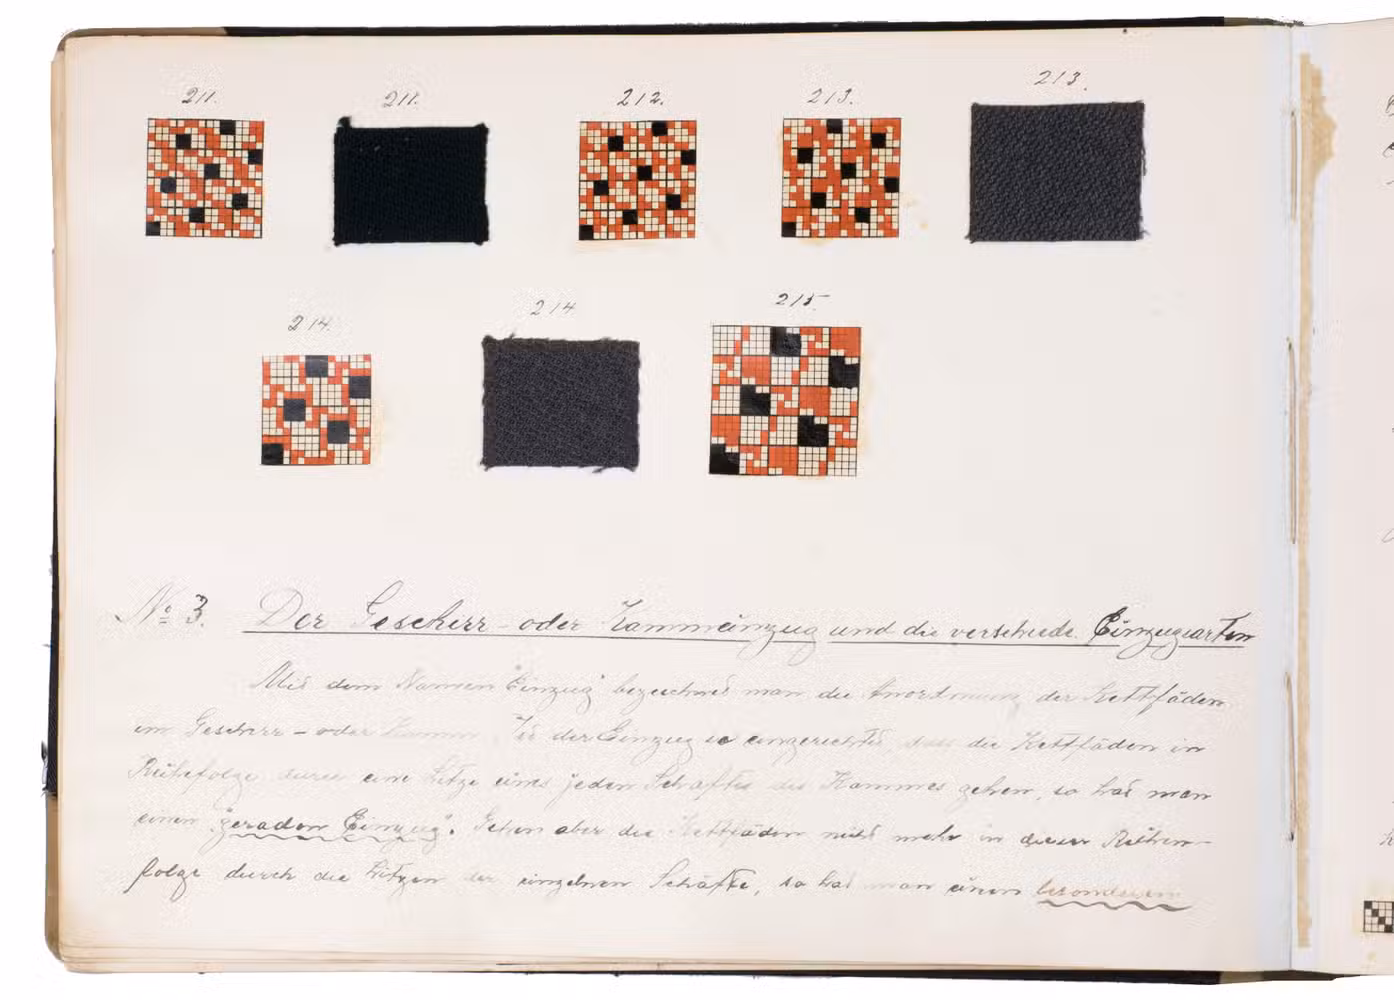 211. 211. 212. 213. 213.
214. 214 215
No 3. Der Geschirr- oder Kammeinzug und die verschiede. Einzugsarten
Mit dem Namen "Einzug" bezeichnet man die Anordnung der Kettfäden
im Geschirr- oder Kamm. Ist der Einzug so eingerichtet, dass die Kettfäden in
Reihefolge durch eine Litze eines jeden Schaftes des Kammes gehen, so hat man
einen "geraden Einzug". Gehen aber die Kettfäden nicht mehr in dieser Reihen-
folge durch die Litzen der einzelnen Schäfte, so hat man einen besonderen